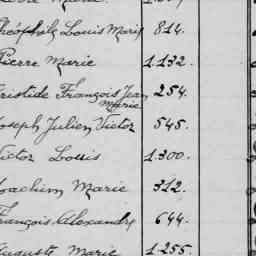 Théophile Louis Marie 814.
Pierre Marie 1.132
Aristide François Jean Marie 254.
Joseph Julien Victor 545.
Victor Louis 1.300.
Joachim Marie 312.
François Alexandre 644.
Auguste Marie 1.255.